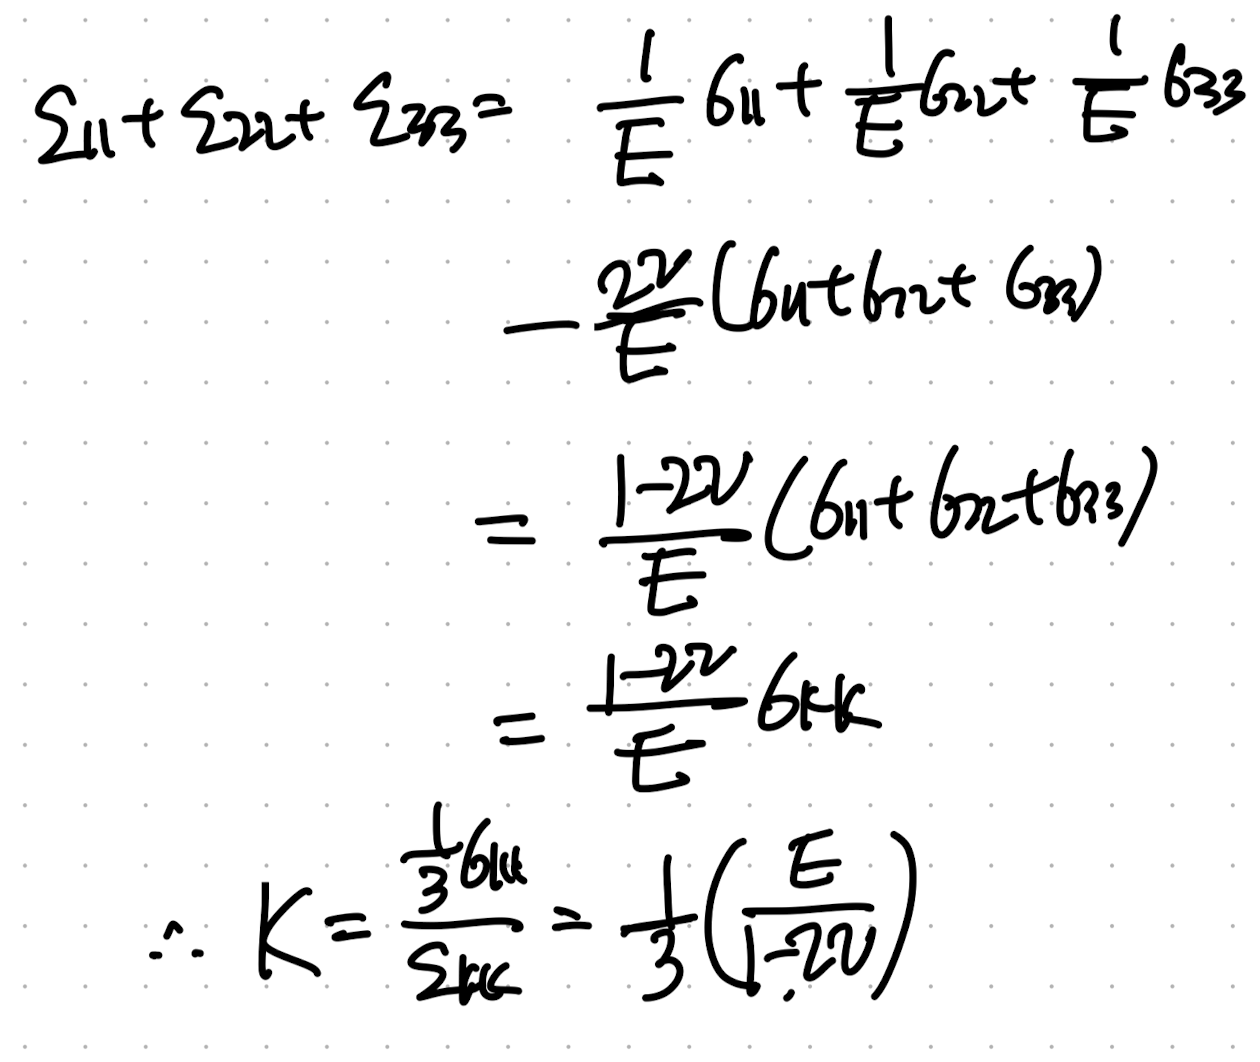 ε₁₁ + ε₂₂ + ε₃₃ = 1/E σ₁₁ + 1/E σ₂₂ + 1/E σ₃₃
− 2ν/E (σ₁₁ + σ₂₂ + σ₃₃)
= (1−2ν)/E (σ₁₁ + σ₂₂ + σ₃₃)
= (1−2ν)/E σₖₖ
∴ K = (1/3 σₖₖ)/εₖₖ = 1/3 (E/(1−2ν))